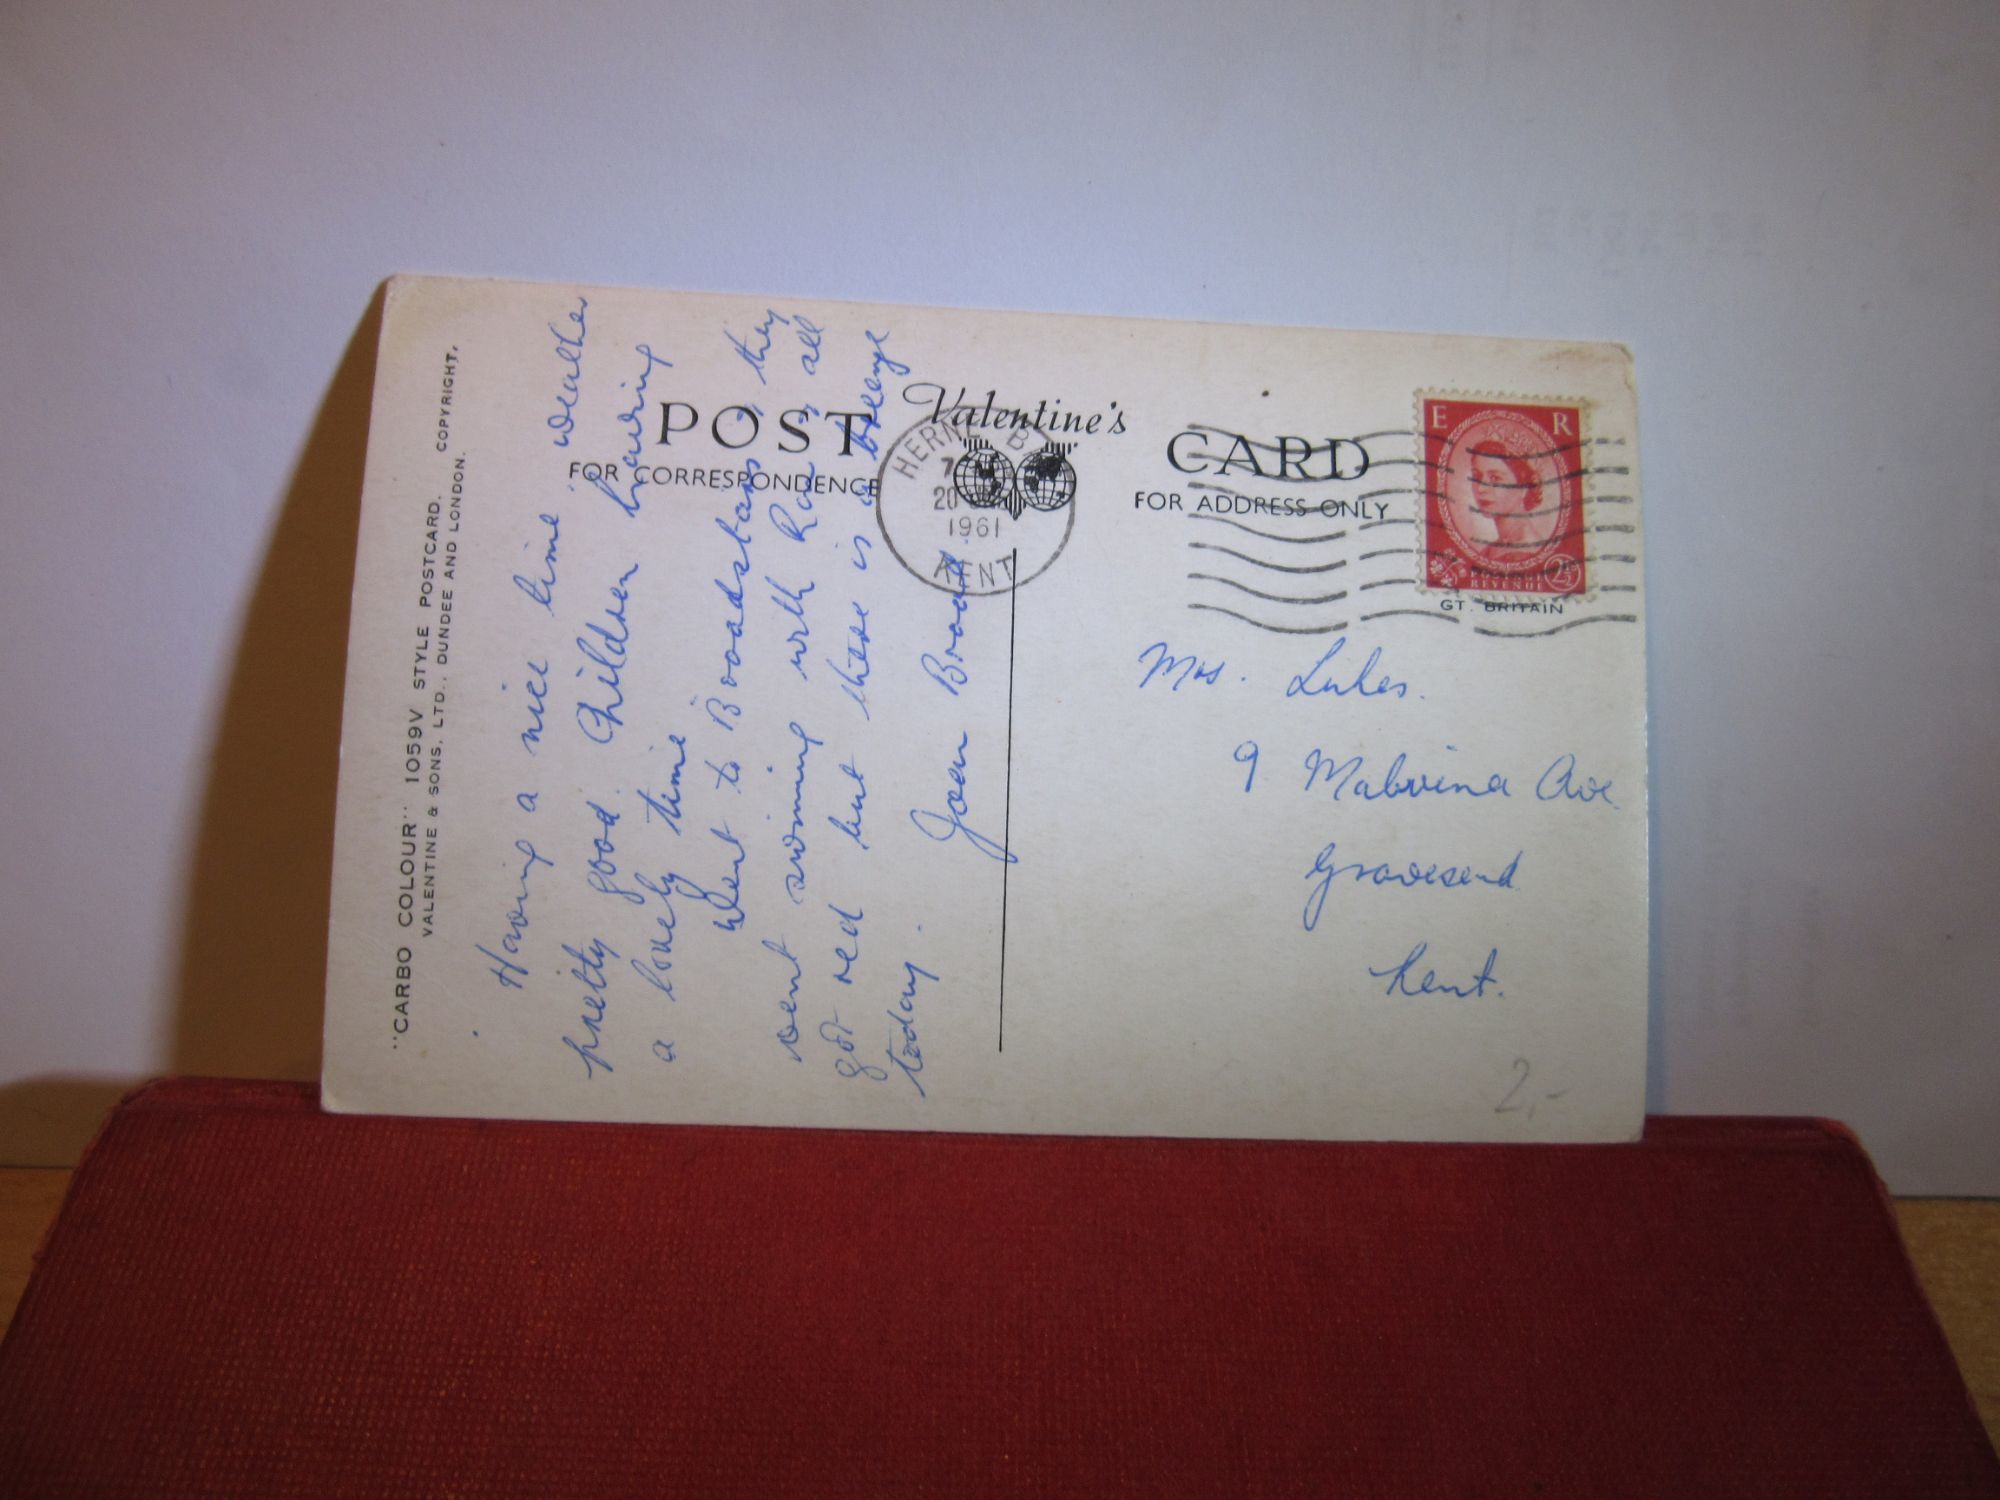 "CARBO COLOUR" 1059V STYLE POSTCARD. COPYRIGHT.
VALENTINE & SONS, LTD., DUNDEE AND LONDON.
POST
Valentine's
CARD
FOR CORRESPONDENCE
FOR ADDRESS ONLY
HERNE B
7
20
1961
KENT
E R
POSTAGE
REVENUE
2½
GT. BRITAIN
Having a nice time weather
pretty good. Children having
a lovely time
Went to Broadstairs, they
went swiming with Ray, all
got red but there is a breeze
today.
Joan Broad.
Mrs. Lukes.
9 Malvina Ave
Gravesend
Kent.
2,-